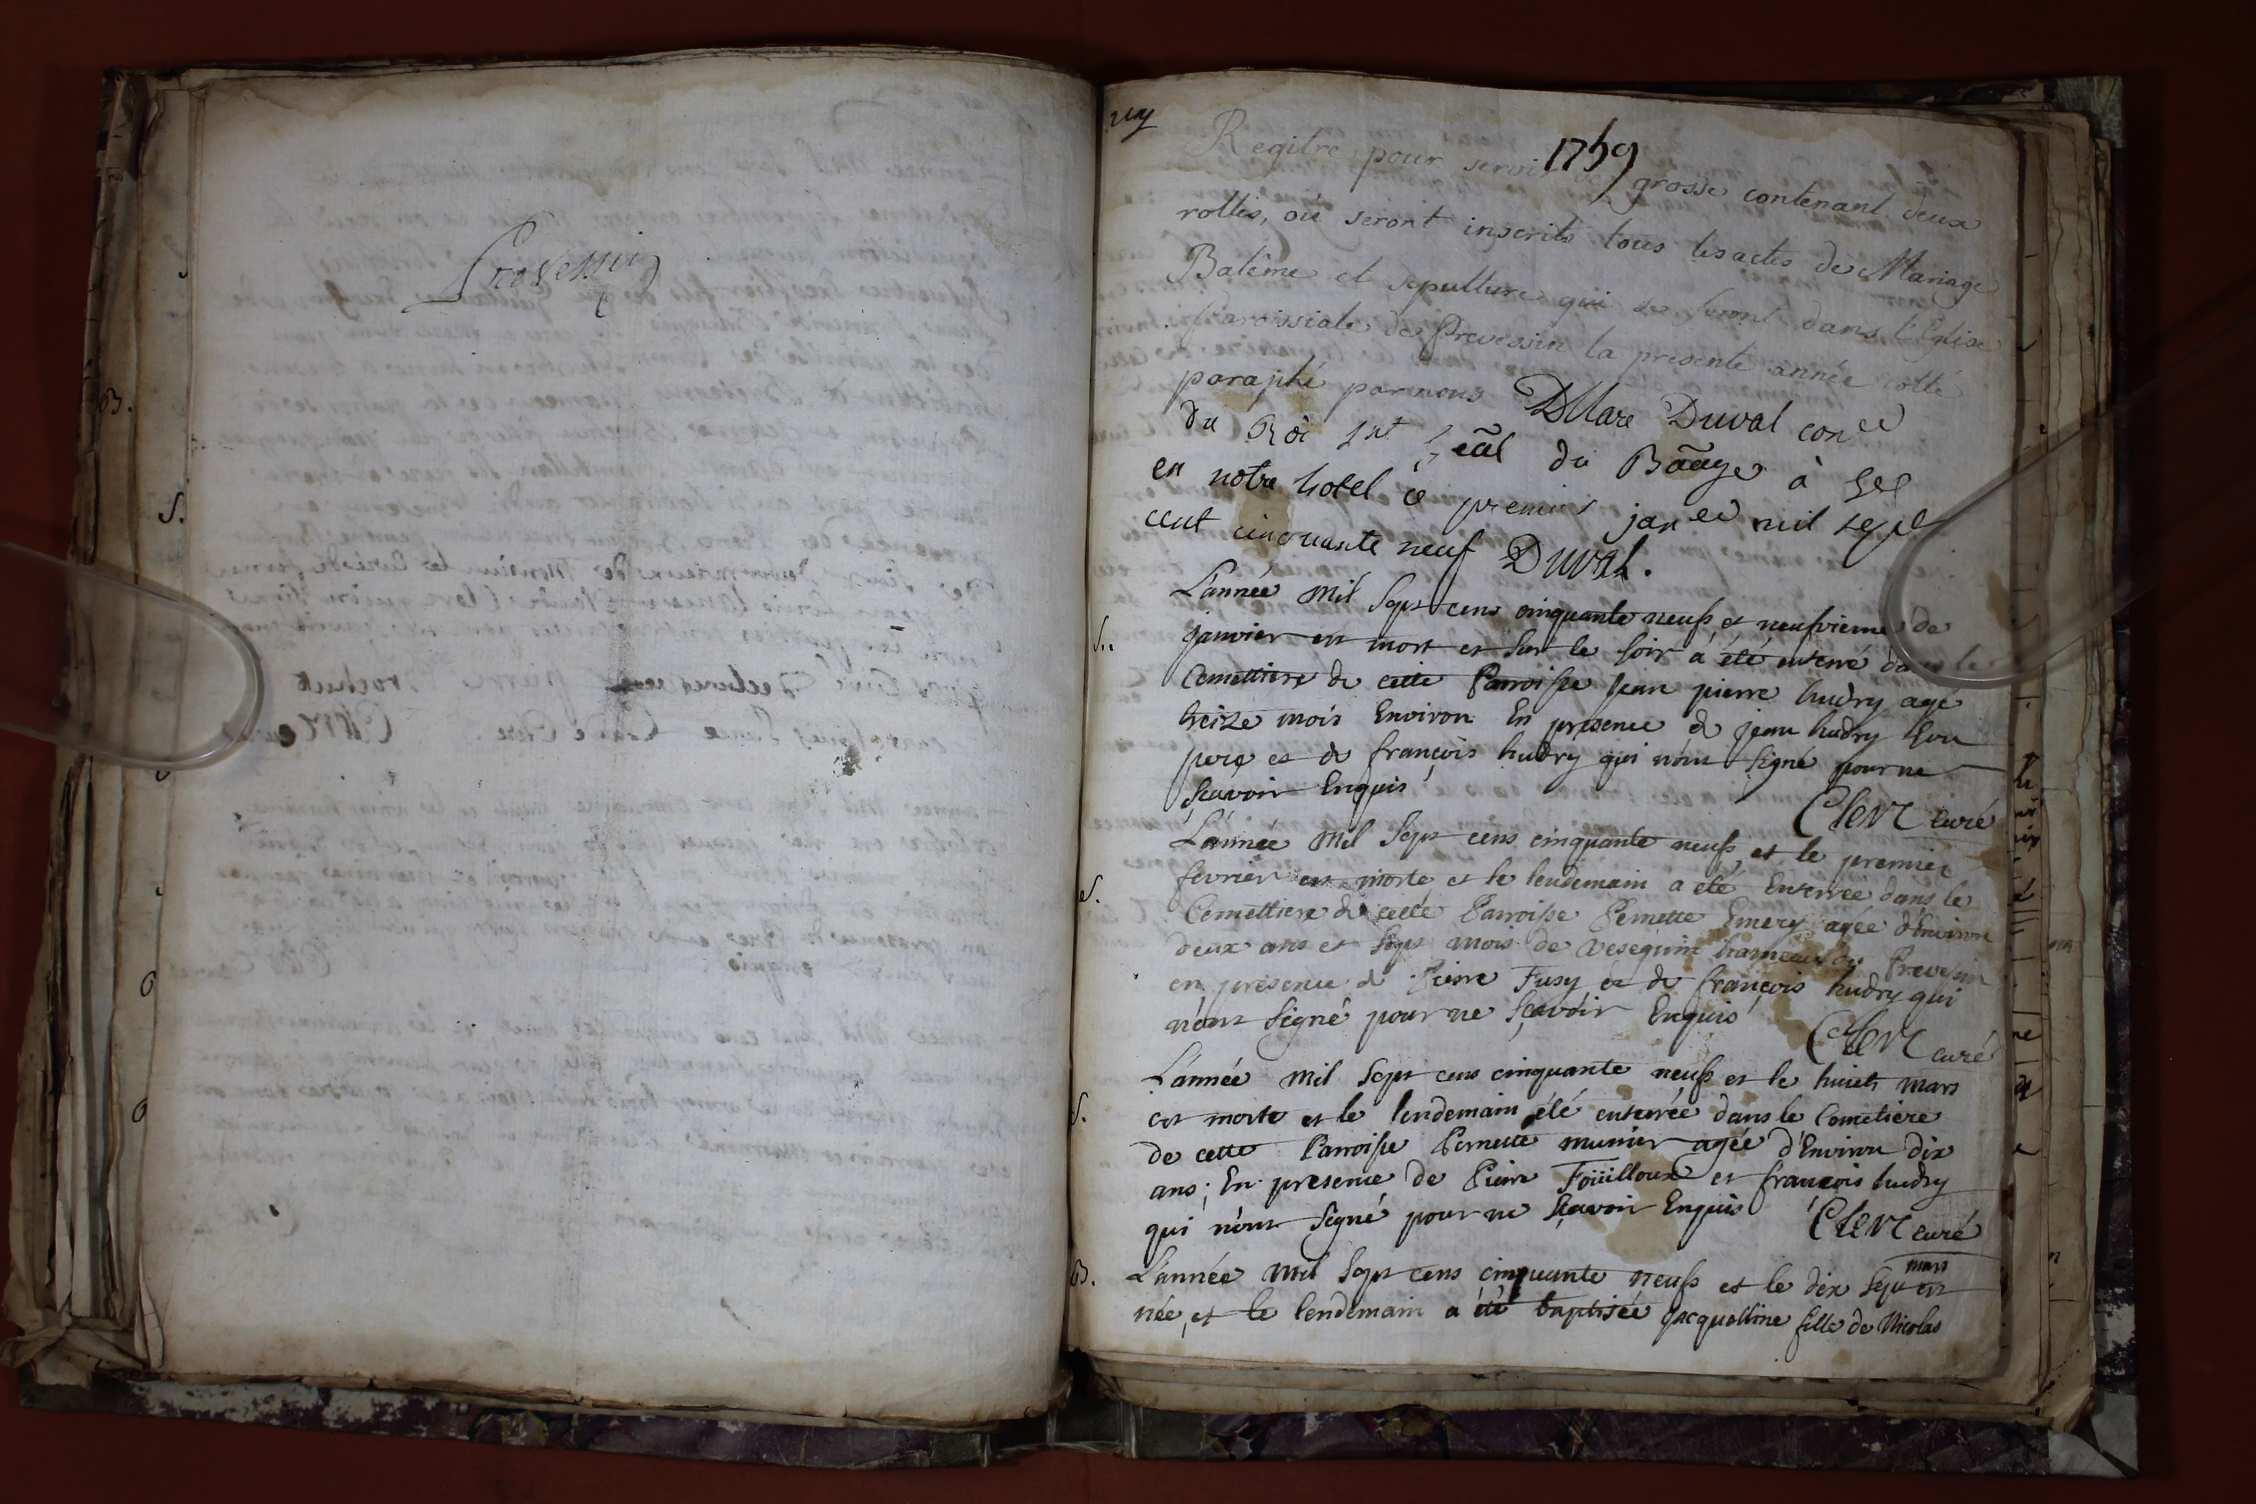 Prevessin
1759
Regitre pour servir de grosse contenant deux
rolles, où seront inscrits tous les actes de Mariage
Batême et sepulture qui se feront dans l'Eglise
Paroissiale de Prevessin la presente année cotté
paraphé par nous DMarc Duval con.er
du Roi Lnt gēāl du Bāāge à Gex
en notre hotel ce premier jan.er mil sept
cent cinquante neuf Duval.
L'année mil sept cens cinquante neufs et neufvieme de
S.. janvier est mort et sur le soir a été enterré dans le
Cemettiere de cette Parroisse Jean pierre hudry agé
treize mois Environ En presence de jean hudry son
pere et de françois hudry qui n'ont signé pour ne
sçavoir Enquis Clerc curé
L'année mil sept cens cinquante neufs et le premier
fevrier est morte et le lendemain a eté Enterrée dans le
S. Cemettiere de cette Parroisse Pernette Emery agée d'Environ
deux ans et sept mois de vesegnin hameau de Prevessin
en presence de Pierre Fusy et de françois hudry qui
n'ont signé pour ne sçavoir Enquis Clerc curé
L'année mil sept cens cinquante neufs et le huict mars
S. est morte et le lendemain été enterrée dans le Cometiere
de cette Parroisse Pernette munier agée d'Environ dix
ans; En presence de Pierre Foüilloux et françois hudry
qui n'ont signé pour ne sçavoir Enquis Clerc curé
B. L'année mil sept cens cinquante neufs et le dix sept mars est
née, et le lendemain a été baptisée jacqueline fille de Nicolas